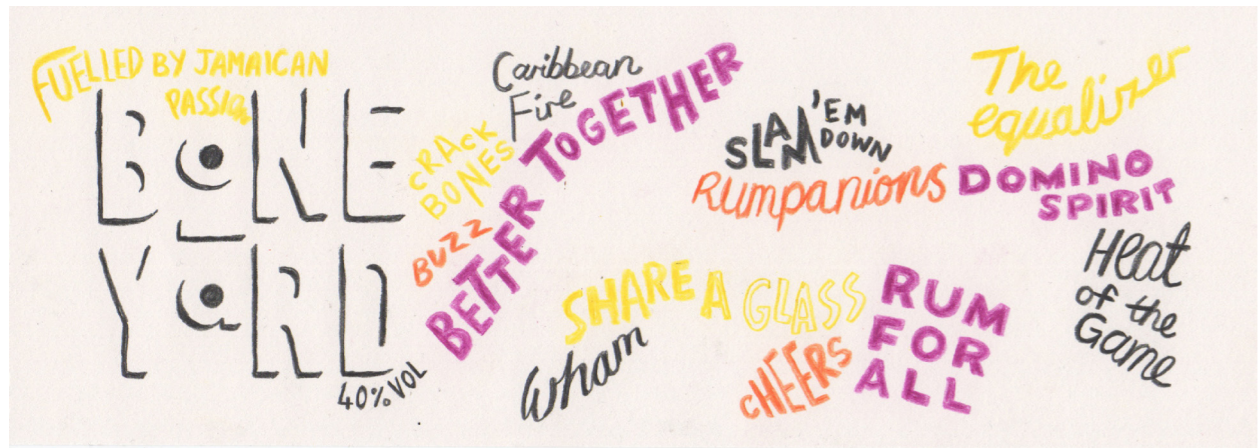 FUELLED BY JAMAICAN
PASSION
BONE
YaRD
40% VOL
Caribbean
Fire
CRACK
BONES
BUZZ
BETTER TOGETHER
SLAM 'EM
DOWN
Rumpanions
The
equalizer
DOMINO
SPIRIT
Heat
of the
Game
SHARE A GLASS
Wham
CHEERS
RUM
FOR
ALL